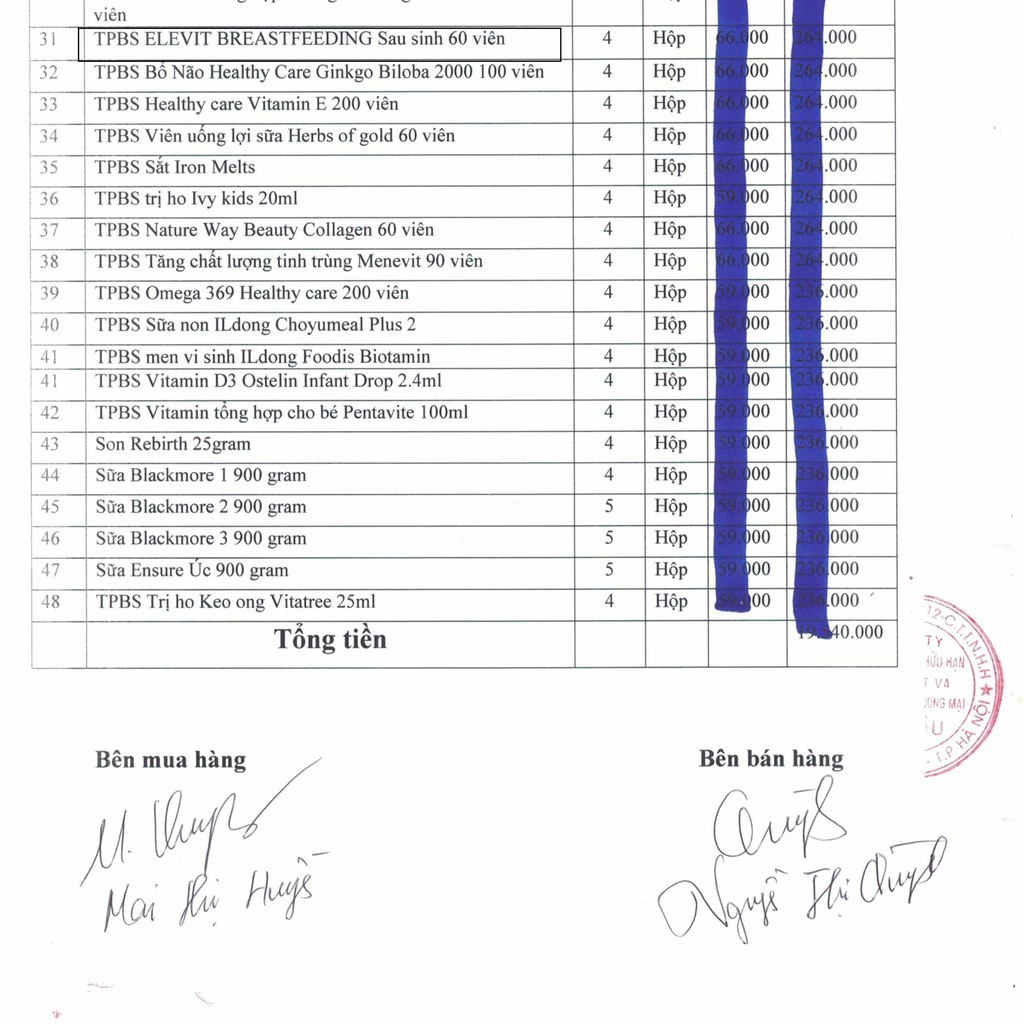 viên
31 TPBS ELEVIT BREASTFEEDING Sau sinh 60 viên 4 Hộp 66.000 264.000
32 TPBS Bổ Não Healthy Care Ginkgo Biloba 2000 100 viên 4 Hộp 66.000 264.000
33 TPBS Healthy care Vitamin E 200 viên 4 Hộp 66.000 264.000
34 TPBS Viên uống lợi sữa Herbs of gold 60 viên 4 Hộp 66.000 264.000
35 TPBS Sắt Iron Melts 4 Hộp 66.000 264.000
36 TPBS trị ho Ivy kids 20ml 4 Hộp 59.000 264.000
37 TPBS Nature Way Beauty Collagen 60 viên 4 Hộp 66.000 264.000
38 TPBS Tăng chất lượng tinh trùng Menevit 90 viên 4 Hộp 66.000 264.000
39 TPBS Omega 369 Healthy care 200 viên 4 Hộp 59.000 236.000
40 TPBS Sữa non ILdong Choyumeal Plus 2 4 Hộp 59.000 236.000
41 TPBS men vi sinh ILdong Foodis Biotamin 4 Hộp 59.000 236.000
41 TPBS Vitamin D3 Ostelin Infant Drop 2.4ml 4 Hộp 59.000 236.000
42 TPBS Vitamin tổng hợp cho bé Pentavite 100ml 4 Hộp 59.000 236.000
43 Son Rebirth 25gram 4 Hộp 59.000 236.000
44 Sữa Blackmore 1 900 gram 4 Hộp 59.000 236.000
45 Sữa Blackmore 2 900 gram 5 Hộp 59.000 236.000
46 Sữa Blackmore 3 900 gram 5 Hộp 59.000 236.000
47 Sữa Ensure Úc 900 gram 5 Hộp 59.000 236.000
48 TPBS Trị ho Keo ong Vitatree 25ml 4 Hộp 59.000 236.000
Tổng tiền 19.340.000
Bên mua hàng Bên bán hàng
Mai Thị Huyền Nguyễn Thị Quỳnh
C.T.T.N.H.H
TY
HỮU HẠN
T VÀ
ƯƠNG MẠI
ÂU
T.P HÀ NỘI